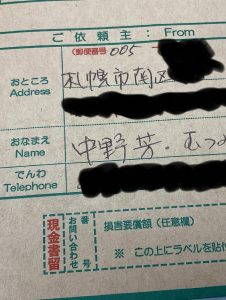 ご依頼主：From
(郵便番号 005
おところ 札幌市南区
Address
おなまえ 中野芳・むつみ
Name
でんわ
Telephone
現金書留
お問い合わせ番号
損害要償額（任意欄）
※ この上にラベルを貼付